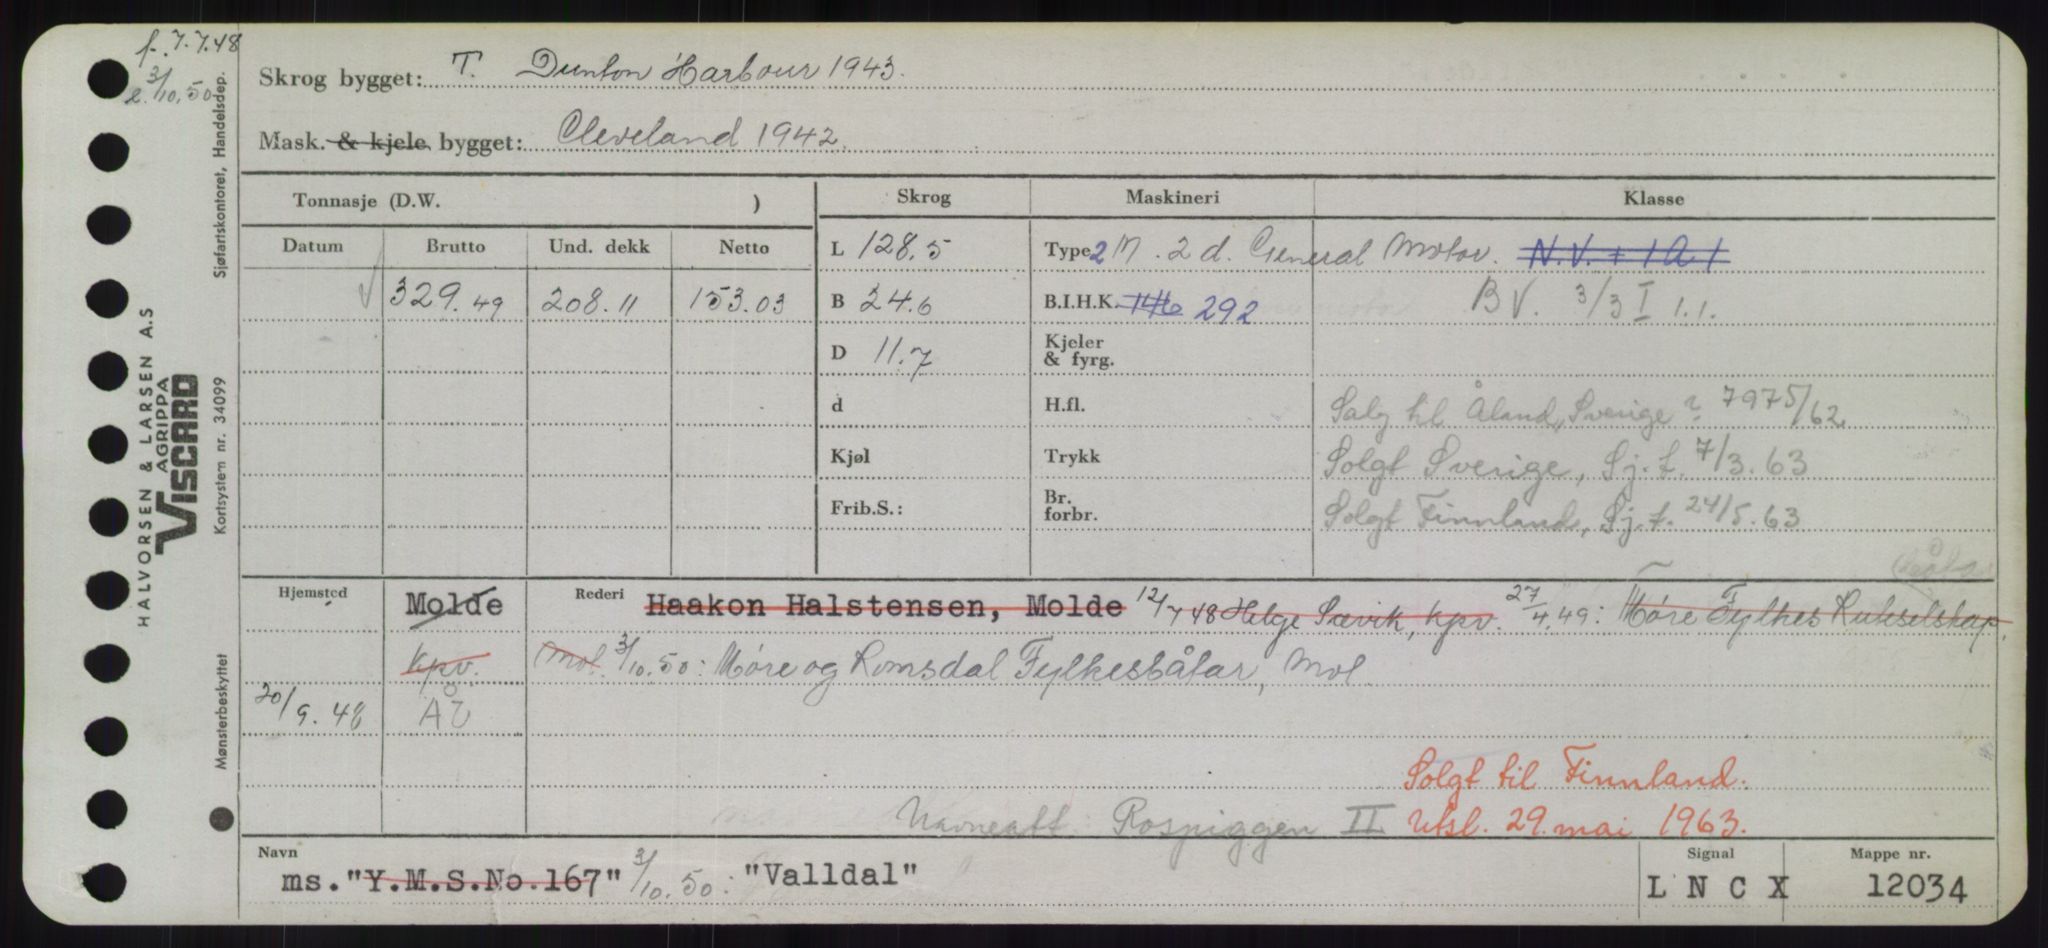 f. 7.7.48
e. 3/10.50
Skrog bygget: T. Dunton Harbour 1943.
Mask. & kjele bygget: Cleveland 1942.
Tonnasje (D.W. ) Skrog Maskineri Klasse
Datum Brutto Und. dekk Netto L 128.5 Type 2 M. 2 d. General Motor. N.V. + 1A1
√ 329.49 208.11 153.03 B 24.6 B.I.H.K. 146 292 BV. 3/3 I 1.1.
D 11.7 Kjeler & fyrg.
d H.fl. Salg til Åland, Sverige ? 7975/62
Kjøl Trykk Solgt Sverige, Sj.f. 7/3.63
Frib.S.: Br. forbr. Solgt Finnland, Sj.f. 24/5.63
Hjemsted Molde Rederi Haakon Halstensen, Molde 12/7 48 Helge Sævik, Kpv. 27/4.49: Møre Fylkes Ruteselskap,
Kpv. Mol. 3/10.50: Møre og Romsdal Fylkesbåtar, Mol.
20/9.48 Å
Solgt til Finnland.
Navneatt Rospiggen II Utsl. 29. mai 1963.
Navn ms. "Y.M.S.No.167" 3/10.50: "Valldal" Signal LNCX Mappe nr. 12034
HALVORSEN & LARSEN A.S
AGRIPPA
VISCARD
Mønsterbeskyttet Kortsystem nr. 34099 Sjøfartskontoret, Handelsdep.